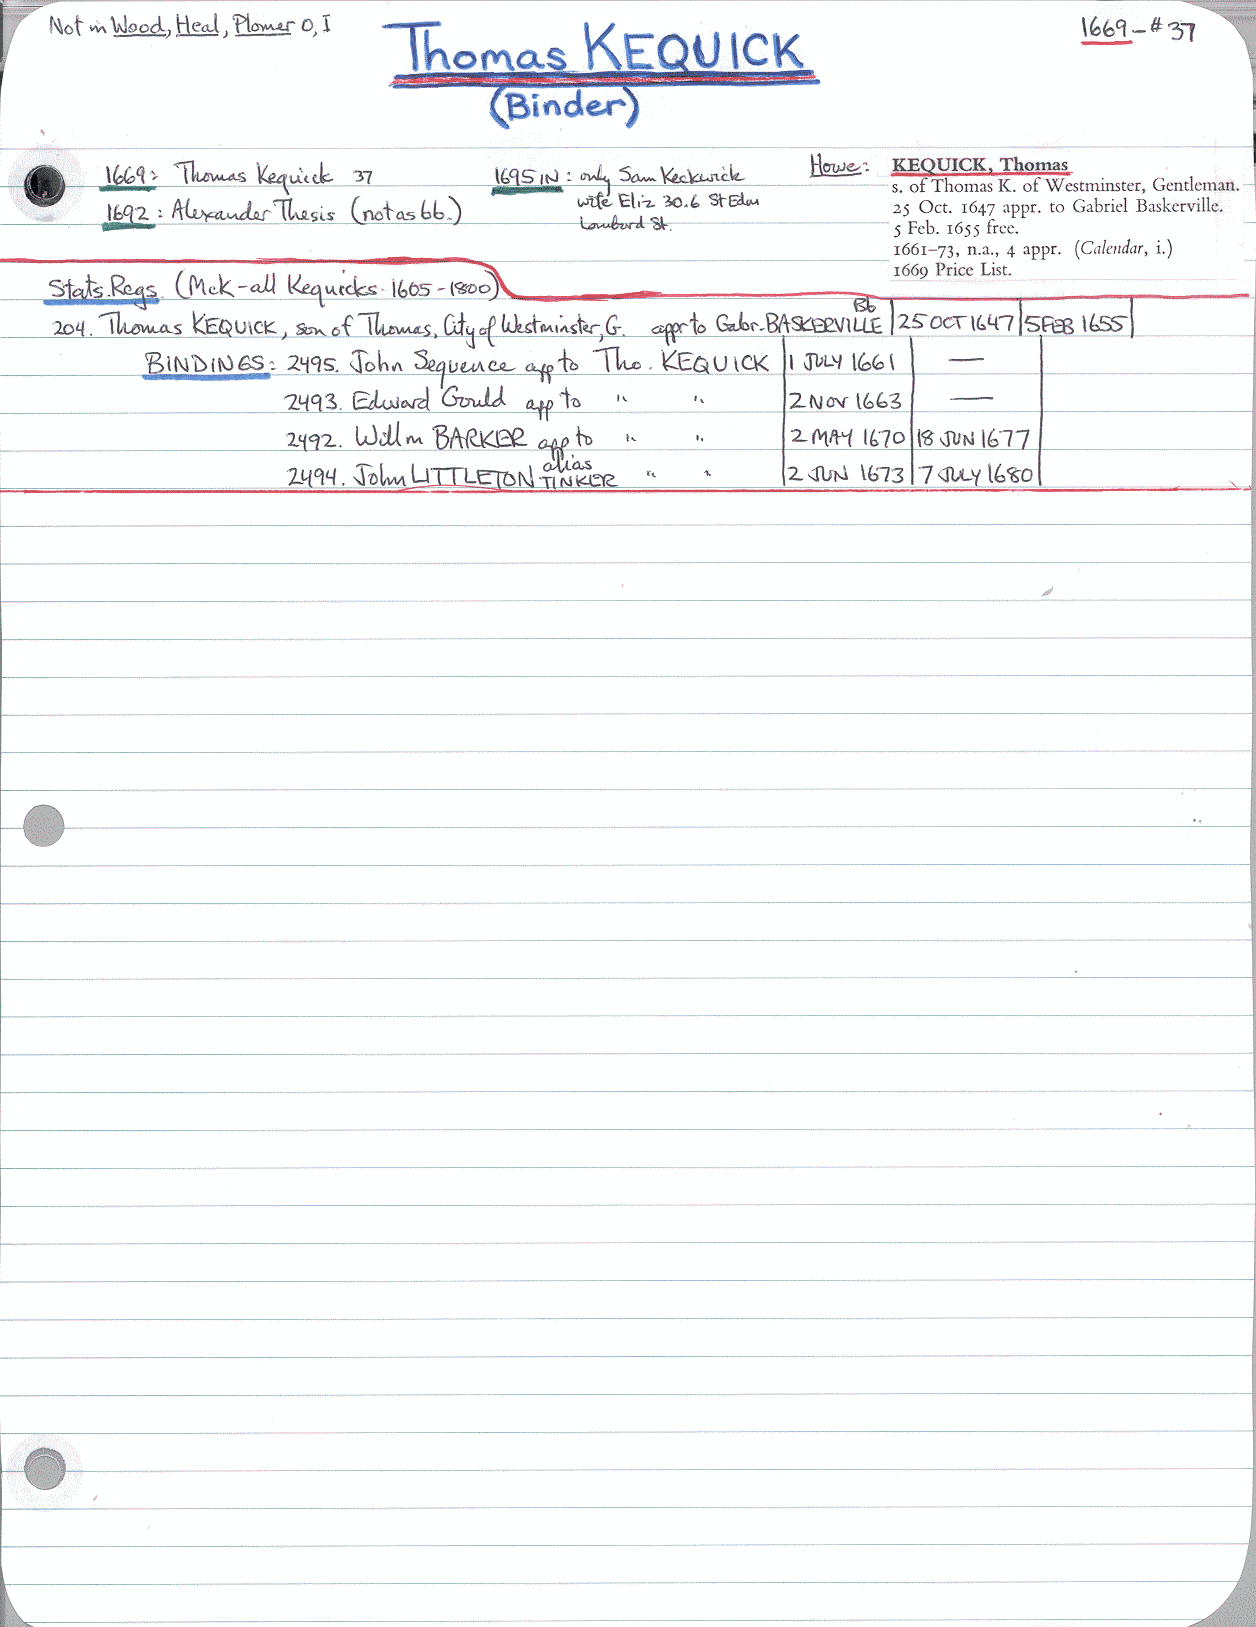 Not in Wood, Heal, Plomer O, I
1669-#37
Thomas KEQUICK
(Binder)
1669: Thomas Kequick 37
1692: Alexander Thesis (not as bb.)
1695 IN: only Sam Keckwick
wife Eliz 30.6 St Edm
Lombard St.
Howe:
KEQUICK, Thomas
s. of Thomas K. of Westminster, Gentleman.
25 Oct. 1647 appr. to Gabriel Baskerville.
5 Feb. 1655 free.
1661–73, n.a., 4 appr. (Calendar, i.)
1669 Price List.
Stats. Regs. (McK-all Kequicks 1605-1800)
204. Thomas KEQUICK, son of Thomas, City of Westminster, G. appr to Gabr. BASKERVILLE Bb 25 OCT 1647 5 FEB 1655
BINDINGS: 2495. John Sequence app to Tho. KEQUICK 1 JULY 1661 —
2493. Edward Gould app to " " 2 NOV 1663 —
2492. Willm BARKER app to " " 2 MAY 1670 18 JUN 1677
2494. John LITTLETON alias TINKER " " 2 JUN 1673 7 JULY 1680